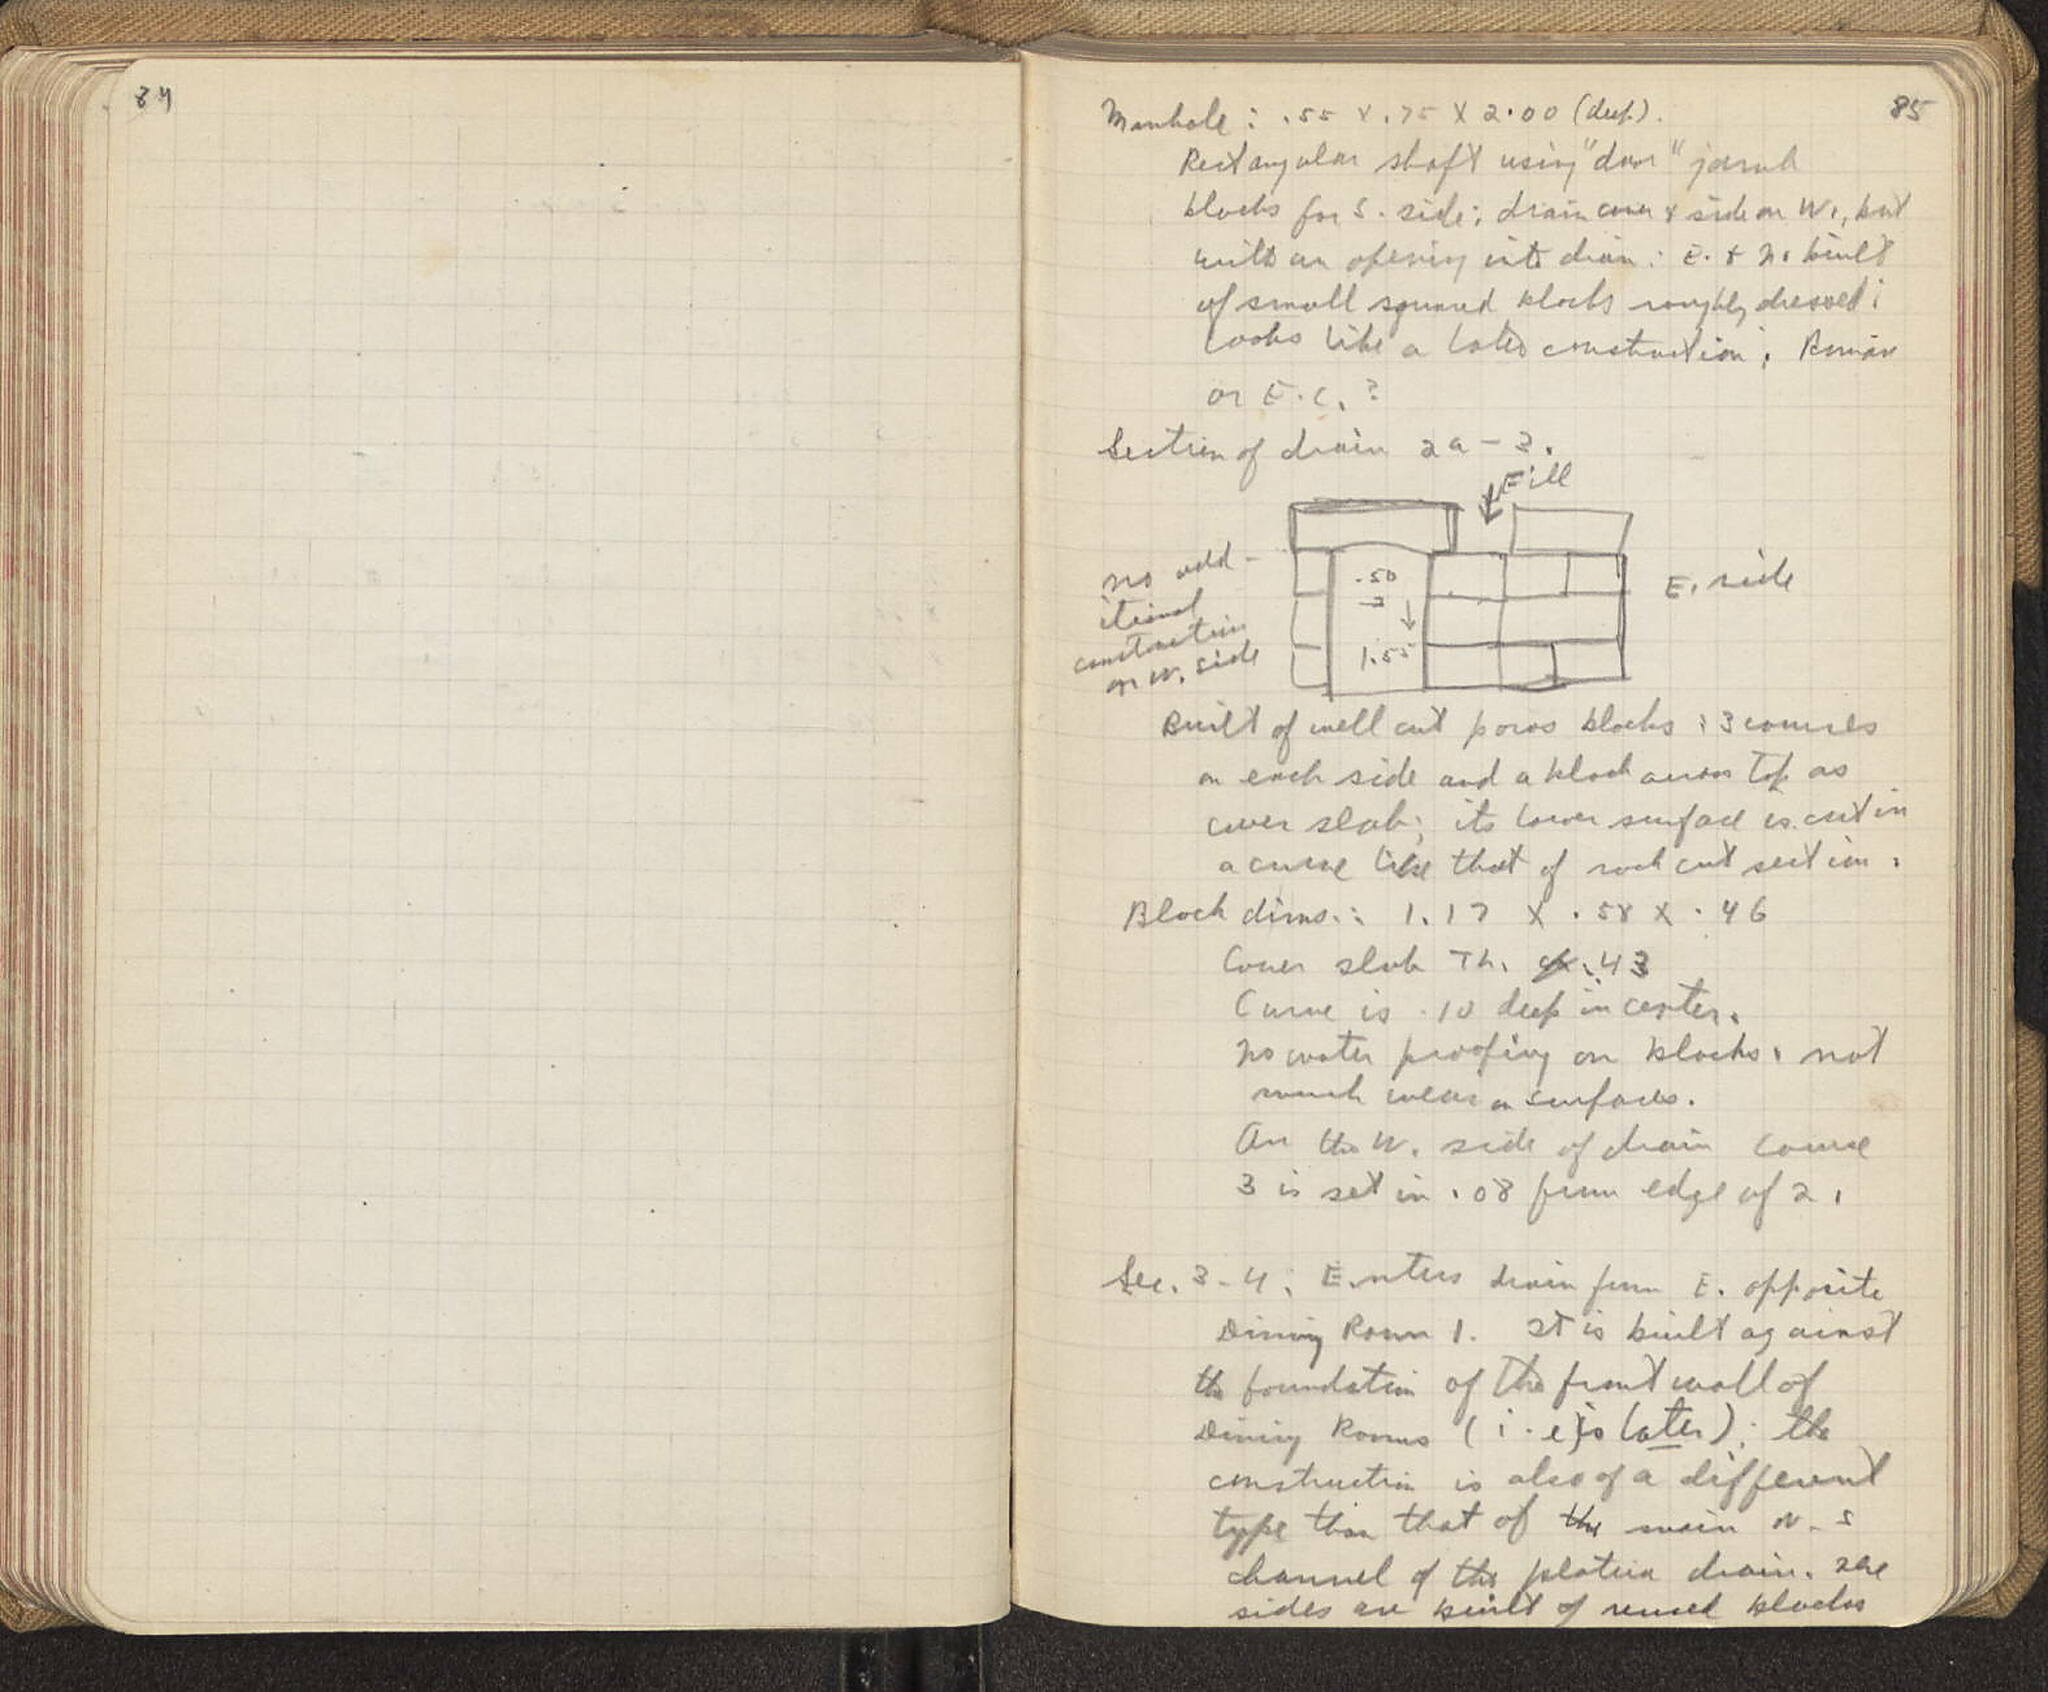 84
85
Manhole: .55 x .75 x 2.00 (deep).
Rectangular shaft using "door" jamb
blocks for S. side; drain cover & side on W., but
with an opening into drain: E. & N. built
of small squared blocks roughly dressed;
looks like a later construction; Roman
or E.C.?
Section of drain 2a - 3.
Fill
no add-
itional
construction
on W. side
.50
1.55
E. side
Built of well cut poros blocks; 3 courses
on each side and a block across top as
cover slab; its lower surface is cut in
a curve like that of rock cut section.
Block dims.: 1.17 x .58 x .46
Cover slab Th. .43
Curve is .10 deep in center.
No water proofing on blocks; not
much wear on surfaces.
On the W. side of drain course
3 is set in .08 from edge of 2.
Sec. 3-4: Enters drain from E. opposite
Dining Room 1. It is built against
the foundation of the front wall of
Dining Rooms (i.e. is later); the
construction is also of a different
type than that of the main N-S
channel of the plateia drain. The
sides are built of reused blocks